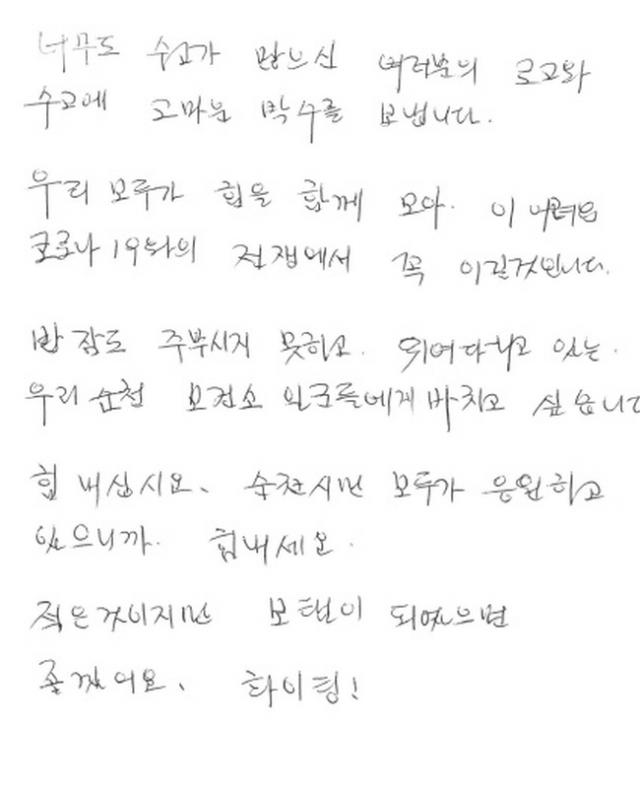 너무도 수고가 많으신 여러분의 로고와
수고에 고마운 박수를 보냅니다.
우리 모두가 힘을 함께 모아. 이 어려운
코로나19와의 전쟁에서 꼭 이길것입니다.
밤잠도 주무시지 못하고. 뛰여다니고 있는.
우리 순천 보건소 일군들에게 바치고 싶습니다
힘 내십시요. 순천시민 모두가 응원하고
있으니까. 힘내세요.
적은것이지만 보탬이 되였으면
좋겠어요. 화이팅!